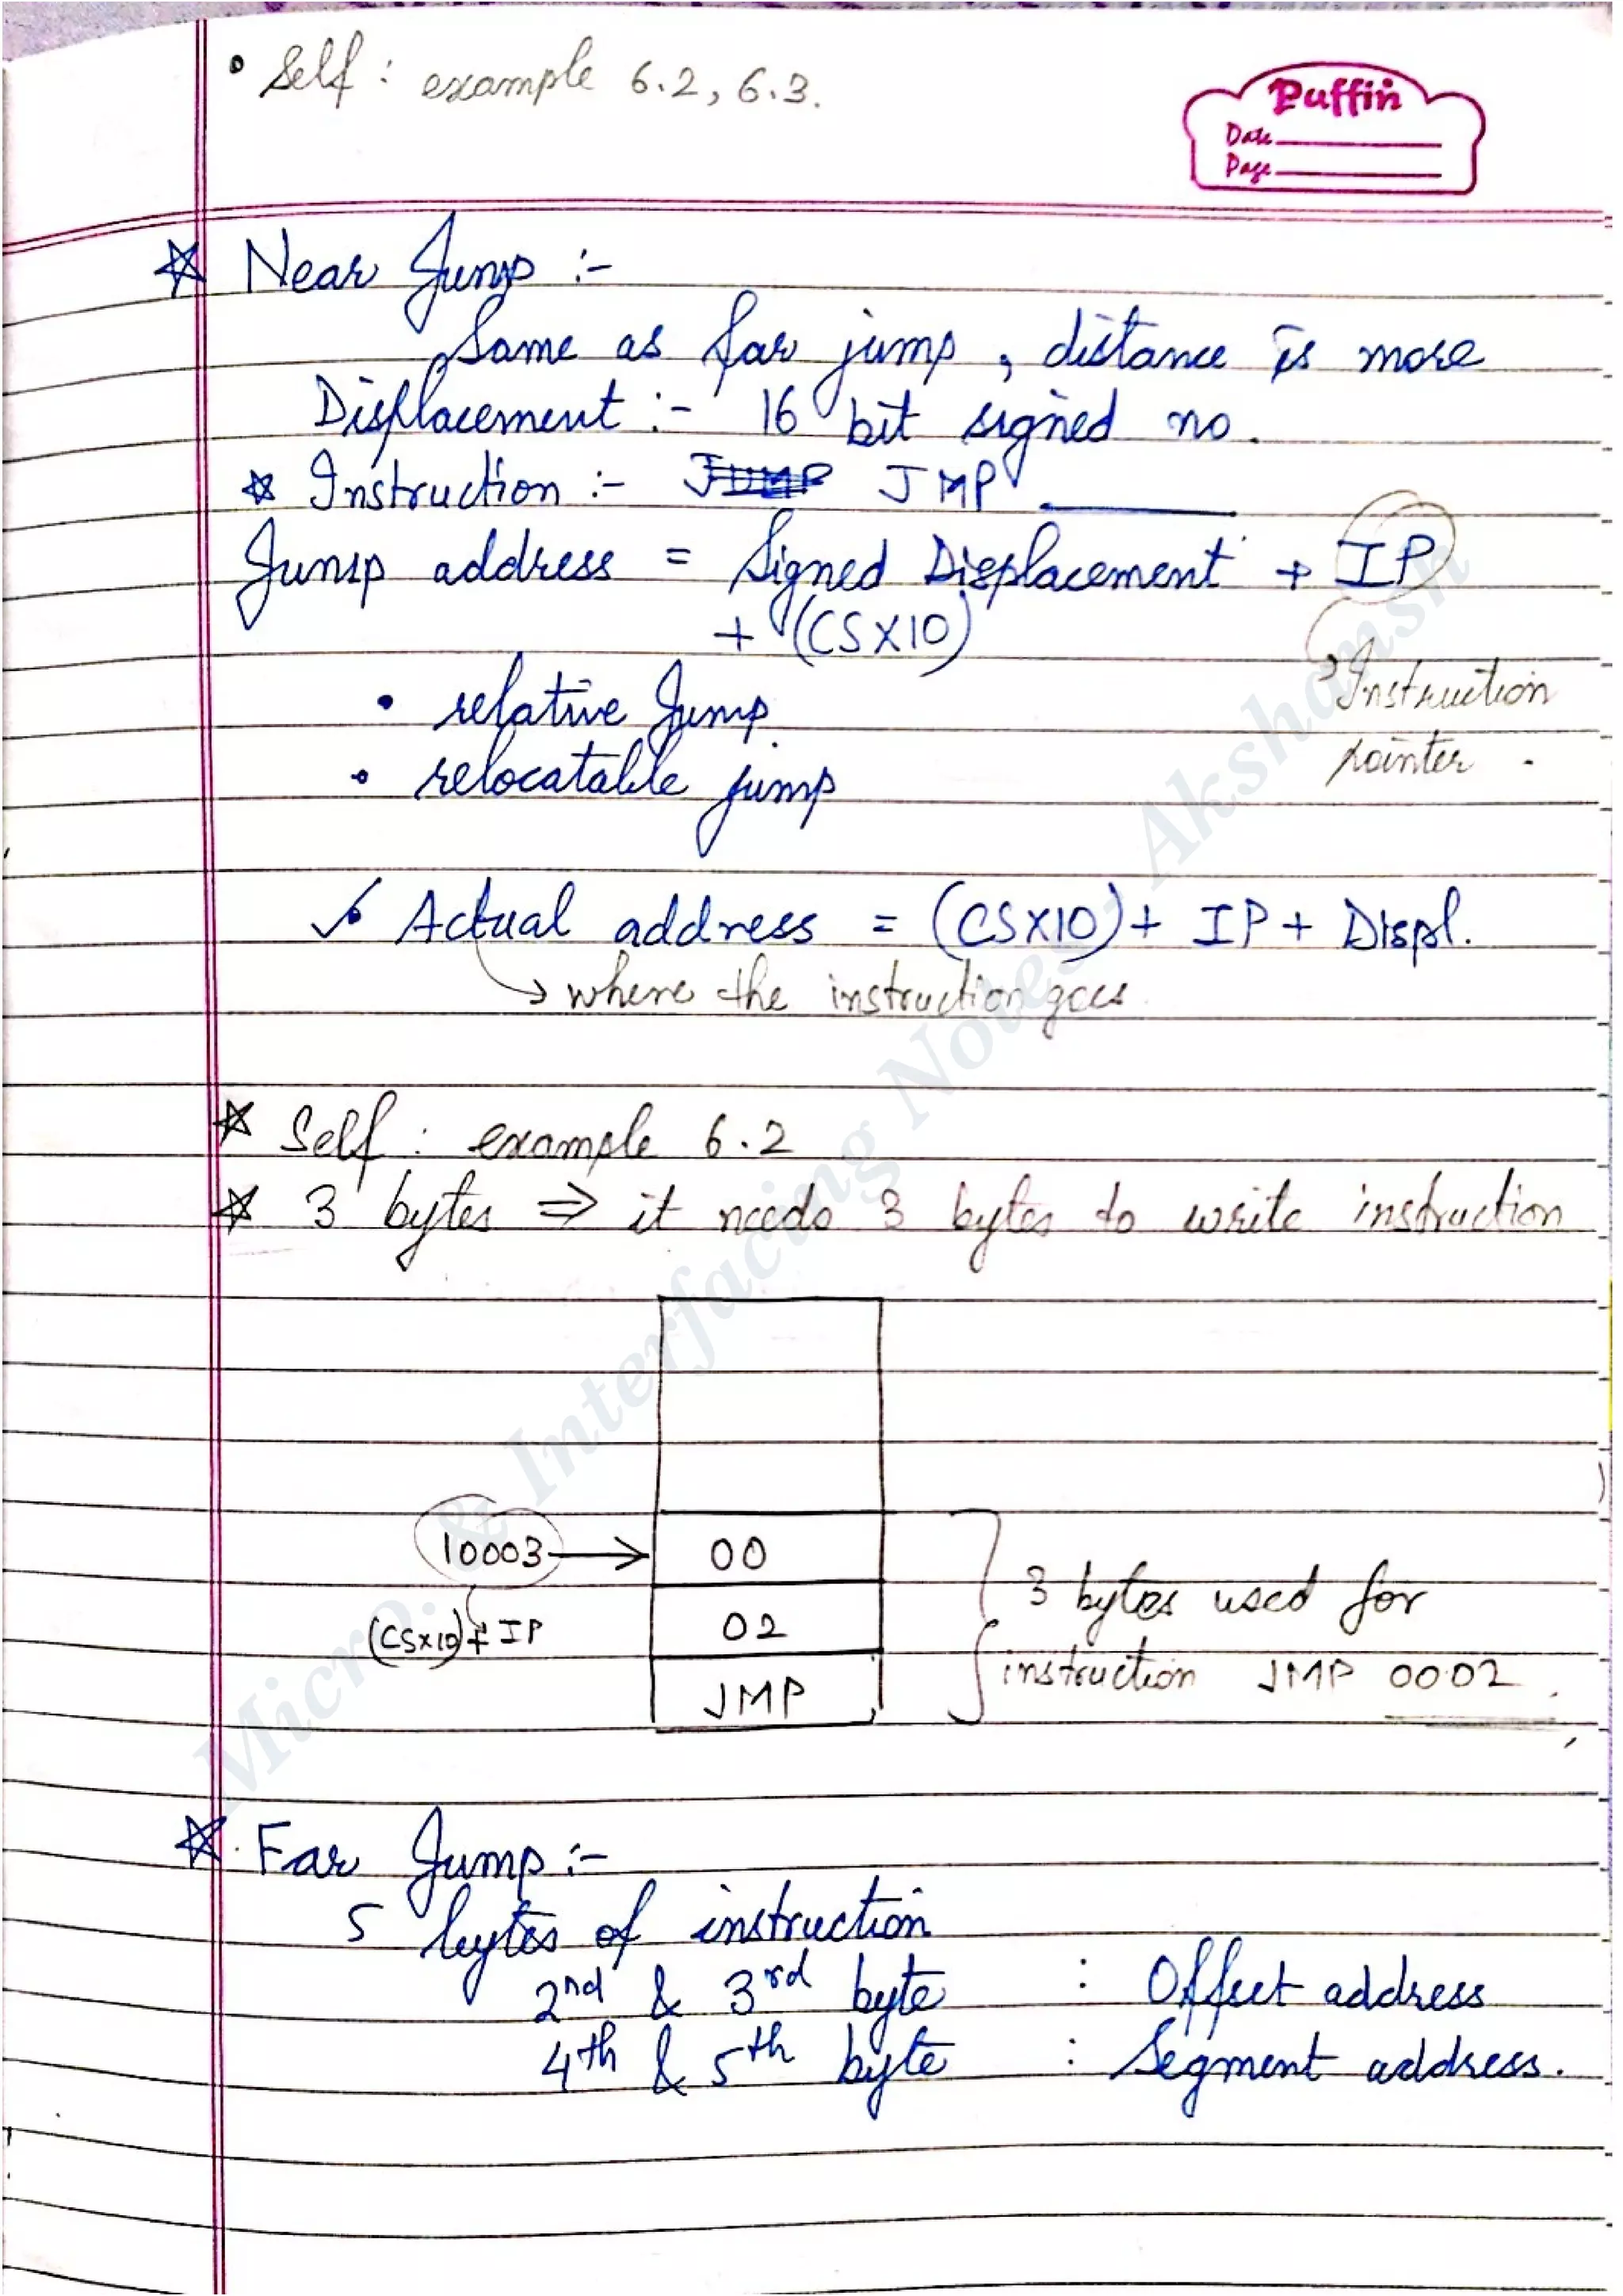 • Self : example 6.2, 6.3.
Puffin
Date
Page
☆ Near Jump :-
Same as far jump, distance is more
Displacement :- 16 bit signed no.
☆ Instruction :- JUMP JMP ______
Jump address = Signed Displacement + IP
+ (CSX10)
Instruction
pointer.
• relative Jump
• relocatable jump
✓• Actual address = (CSX10) + IP + Displ.
→ where the instruction goes
☆ Self : example 6.2
☆ 3 bytes ⇒ it needs 3 bytes to write instruction
10003 → 00
(CSx10) + IP 02
JMP
3 bytes used for
instruction JMP 0002.
☆ Far Jump :-
5 bytes of instruction
2nd & 3rd byte : Offset address
4th & 5th byte : Segment address.
Micro. & Interfacing Notes - Akshansh